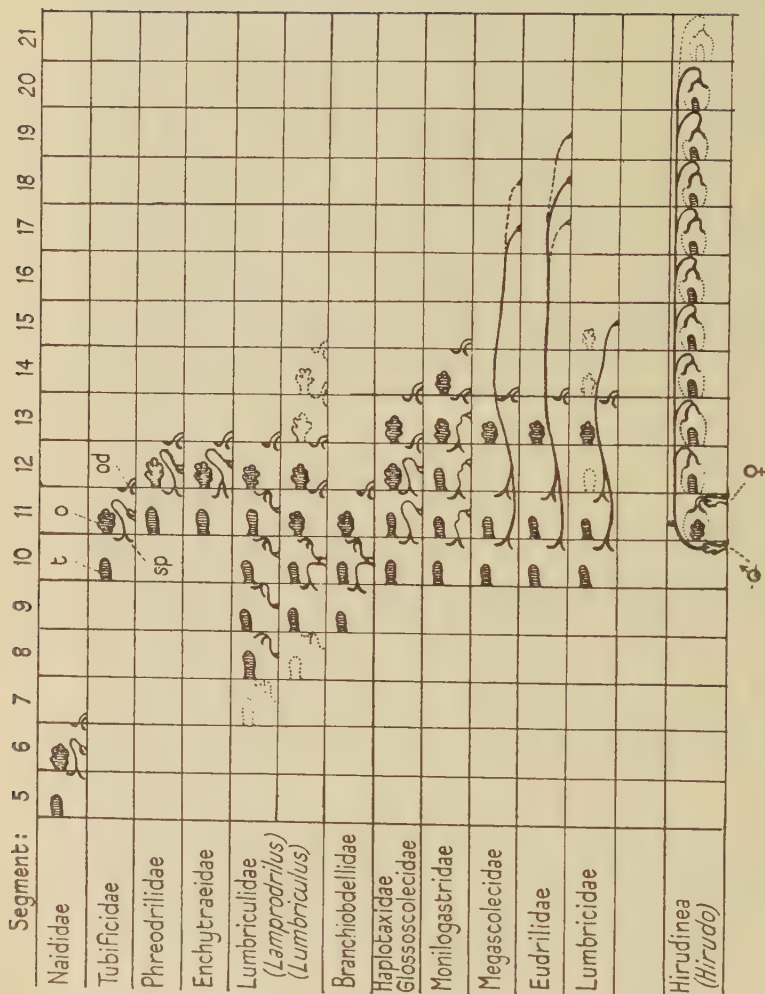 Segment: 5 6 7 8 9 10 11 12 13 14 15 16 17 18 19 20 21
Naididae
Tubificidae
t o od
sp
Phreodrilidae
Enchytraeidae
Lumbriculidae
(Lamprodrilus)
(Lumbriculus)
Branchiobdellidae
Haplotaxidae
Glossoscolecidae
Monilogastridae
Megascolecidae
Eudrilidae
Lumbricidae
Hirudinea
(Hirudo)
♂ ♀